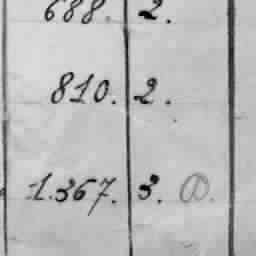 688. 2.
810. 2.
1.367. 3.